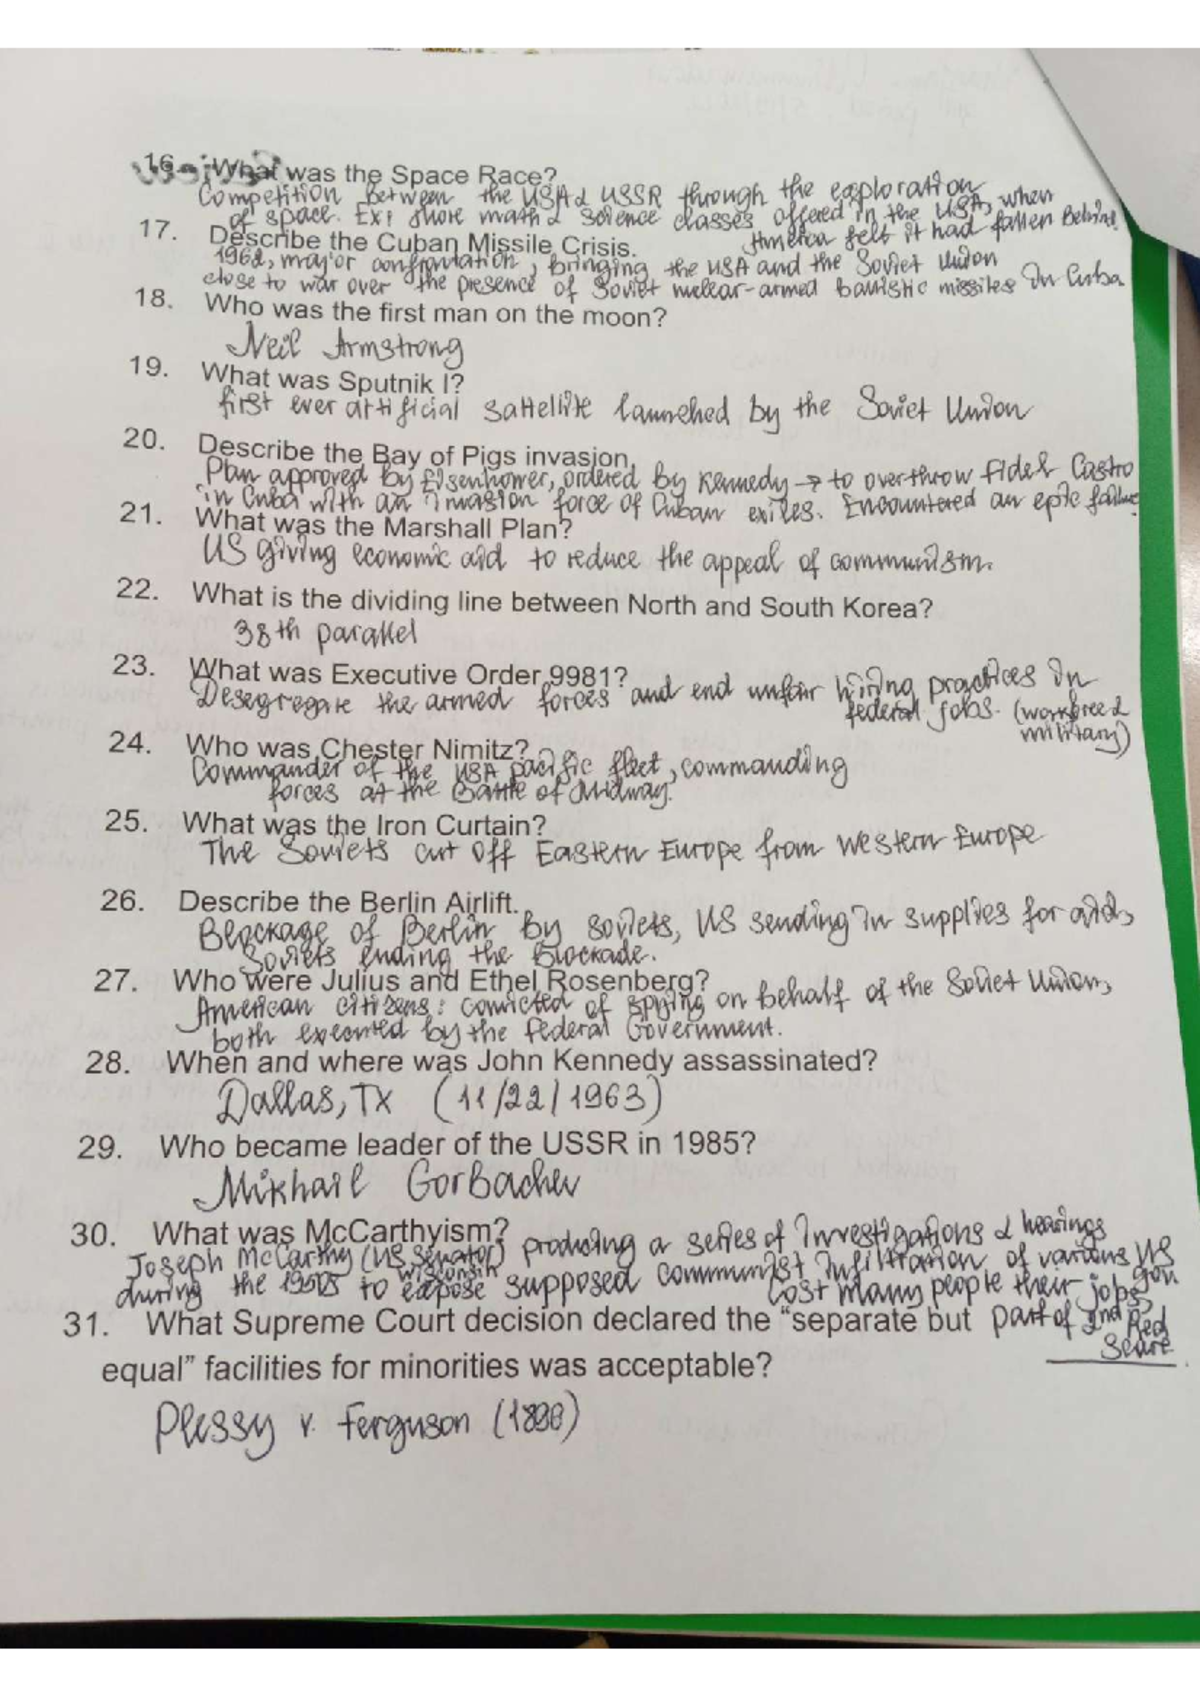 16. What was the Space Race?
Competition between the USA & USSR through the exploration
of space. Ex: more math & science classes offered in the USA, when
America felt it had fallen behind.
17. Describe the Cuban Missile Crisis.
1962, major confrontation, bringing the USA and the Soviet Union
close to war over the presence of Soviet nuclear-armed ballistic missiles in Cuba
18. Who was the first man on the moon?
Neil Armstrong
19. What was Sputnik I?
first ever artificial sattellite launched by the Soviet Union
20. Describe the Bay of Pigs invasion.
Plan approved by Eisenhower, ordered by Kennedy → to overthrow Fidel Castro
in Cuba with an invasion force of Cuban exiles. Encountered an epic failure.
21. What was the Marshall Plan?
US giving economic aid to reduce the appeal of communism.
22. What is the dividing line between North and South Korea?
38th parallel
23. What was Executive Order 9981?
Desegregate the armed forces and end unfair hiring practices in
federal jobs. (workforce &
military)
24. Who was Chester Nimitz?
Commander of the USA pacific fleet, commanding
forces at the Battle of Midway.
25. What was the Iron Curtain?
The Soviets cut off Eastern Europe from Western Europe
26. Describe the Berlin Airlift.
Blockage of Berlin by Soviets, US sending in supplies for aid,
Soviets ending the Blockade.
27. Who were Julius and Ethel Rosenberg?
American citizens: convicted of spying on behalf of the Soviet Union,
both executed by the federal Government.
28. When and where was John Kennedy assassinated?
Dallas, TX (11/22/1963)
29. Who became leader of the USSR in 1985?
Mikhail Gorbachev
30. What was McCarthyism?
Joseph McCarthy (US senator) producing a series of investigations & hearings
wisconsin
during the 1950s to expose supposed communist infiltration of various US
gov
Lost many people their jobs,
part of 2nd Red
Scare
31. What Supreme Court decision declared the “separate but
equal” facilities for minorities was acceptable?
Plessy v. Ferguson